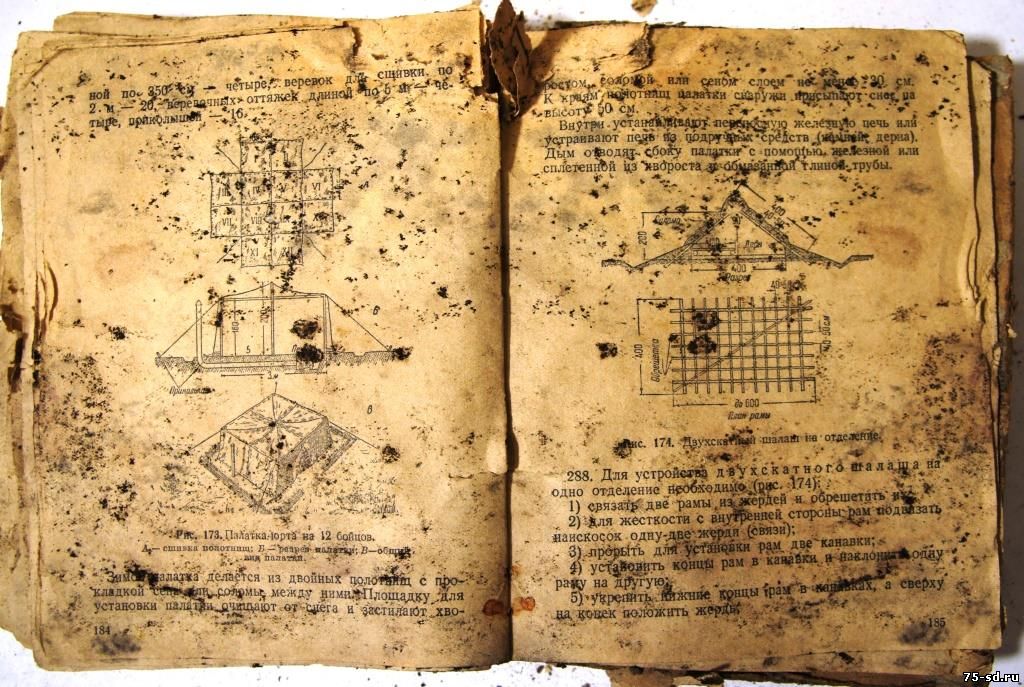 ной по 350 см — четыре, веревок для сшивки по
2 м — 20, веревочных оттяжек длиной по 5 м — че-
тыре, приколышей — 16.
VI
VII
VIII
XI
Б
5
Приколыш
В
Рис. 173. Палатка-юрта на 12 бойцов.
А — сшивка полотнищ; Б — разрез палатки; В — общий
вид палатки.
Зимой палатка делается из двойных полотнищ с про-
кладкой сена или соломы между ними. Площадку для
установки палатки очищают от снега и застилают хво-
184
ростом, соломой или сеном слоем не менее 30 см.
К краям полотнищ палатки снаружи присыпают снег на
высоту 50 см.
Внутри устанавливают переносную железную печь или
устраивают печь из подручных средств (камней, дерна).
Дым отводят сбоку палатки с помощью железной или
сплетенной из хвороста и обмазанной глиной трубы.
Солома
200
400
Разрез
400
Обрешетка
до 600
План рамы
Рис. 174. Двухскатный шалаш на отделение.
288. Для устройства двухскатного шалаша на
одно отделение необходимо (рис. 174):
1) связать две рамы из жердей и обрешетить их;
2) для жесткости с внутренней стороны рам подвязать
наискосок одну-две жерди (связи);
3) прорыть для установки рам две канавки;
4) установить концы рам в канавки и наклонить одну
раму на другую;
5) укрепить нижние концы рам в канавках, а сверху
на конек положить жердь;
185
75-sd.ru